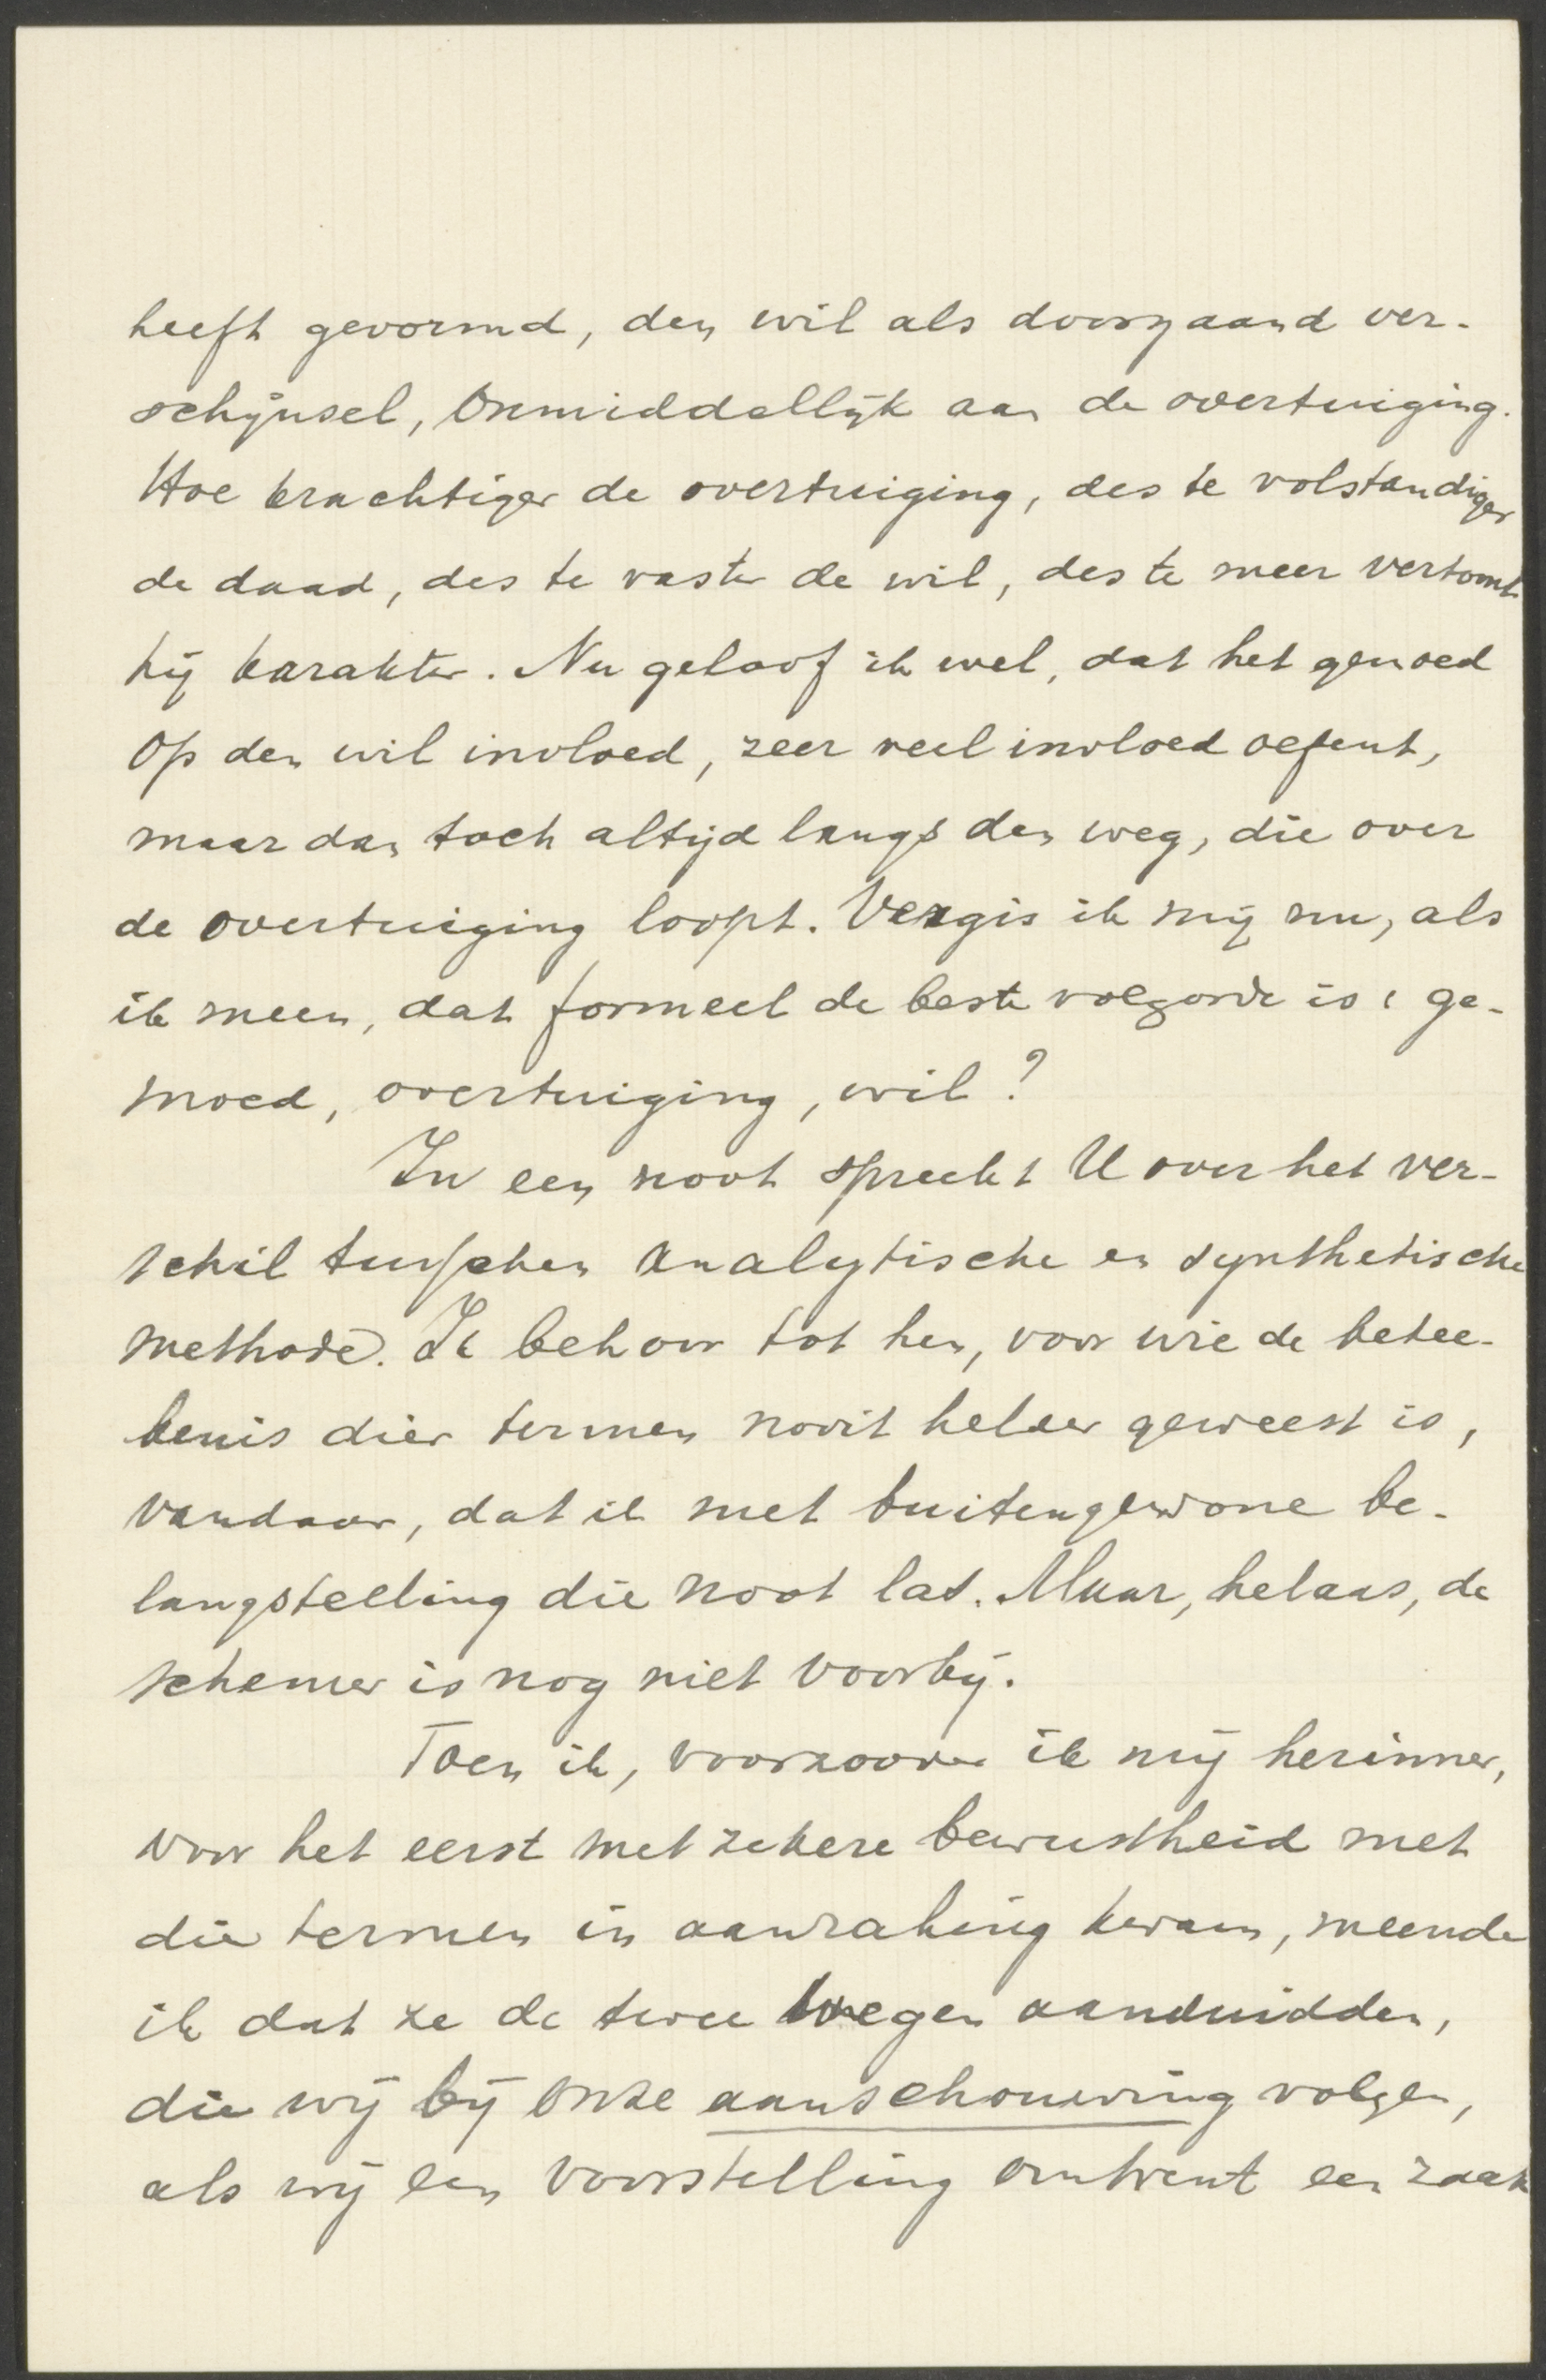 heeft gevormd, den wil als doorgaand ver-
schijnsel, onmiddellijk aan de overtuiging.
Hoe krachtiger de overtuiging, des te volstandiger
de daad, des te vaster de wil, des te meer vertoont
hij karakter. Nu geloof ik wel, dat het gemoed
op den wil invloed, zeer veel invloed oefent,
maar dan toch altijd langs den weg, die over
de overtuiging loopt. Vergis ik mij nu, als
ik meen, dat formeel de beste volgorde is: ge-
moed, overtuiging, wil?
In een noot spreekt U over het ver-
schil tusschen analytische en synthetische
methode. Ik behoor tot hen, voor wie de betee-
kenis dier termen nooit helder geweest is,
vandaar, dat ik met buitengewone be-
langstelling die noot las. Maar, helaas, de
schemer is nog niet voorbij.
Toen ik, voorzoover ik mij herinner,
voor het eerst met zekere bewustheid met
die termen in aanraking kwam, meende
ik dat ze de twee wegen aanduidden,
die wij bij onze aanschouwing volgen,
als wij een voorstelling omtrent een zaak